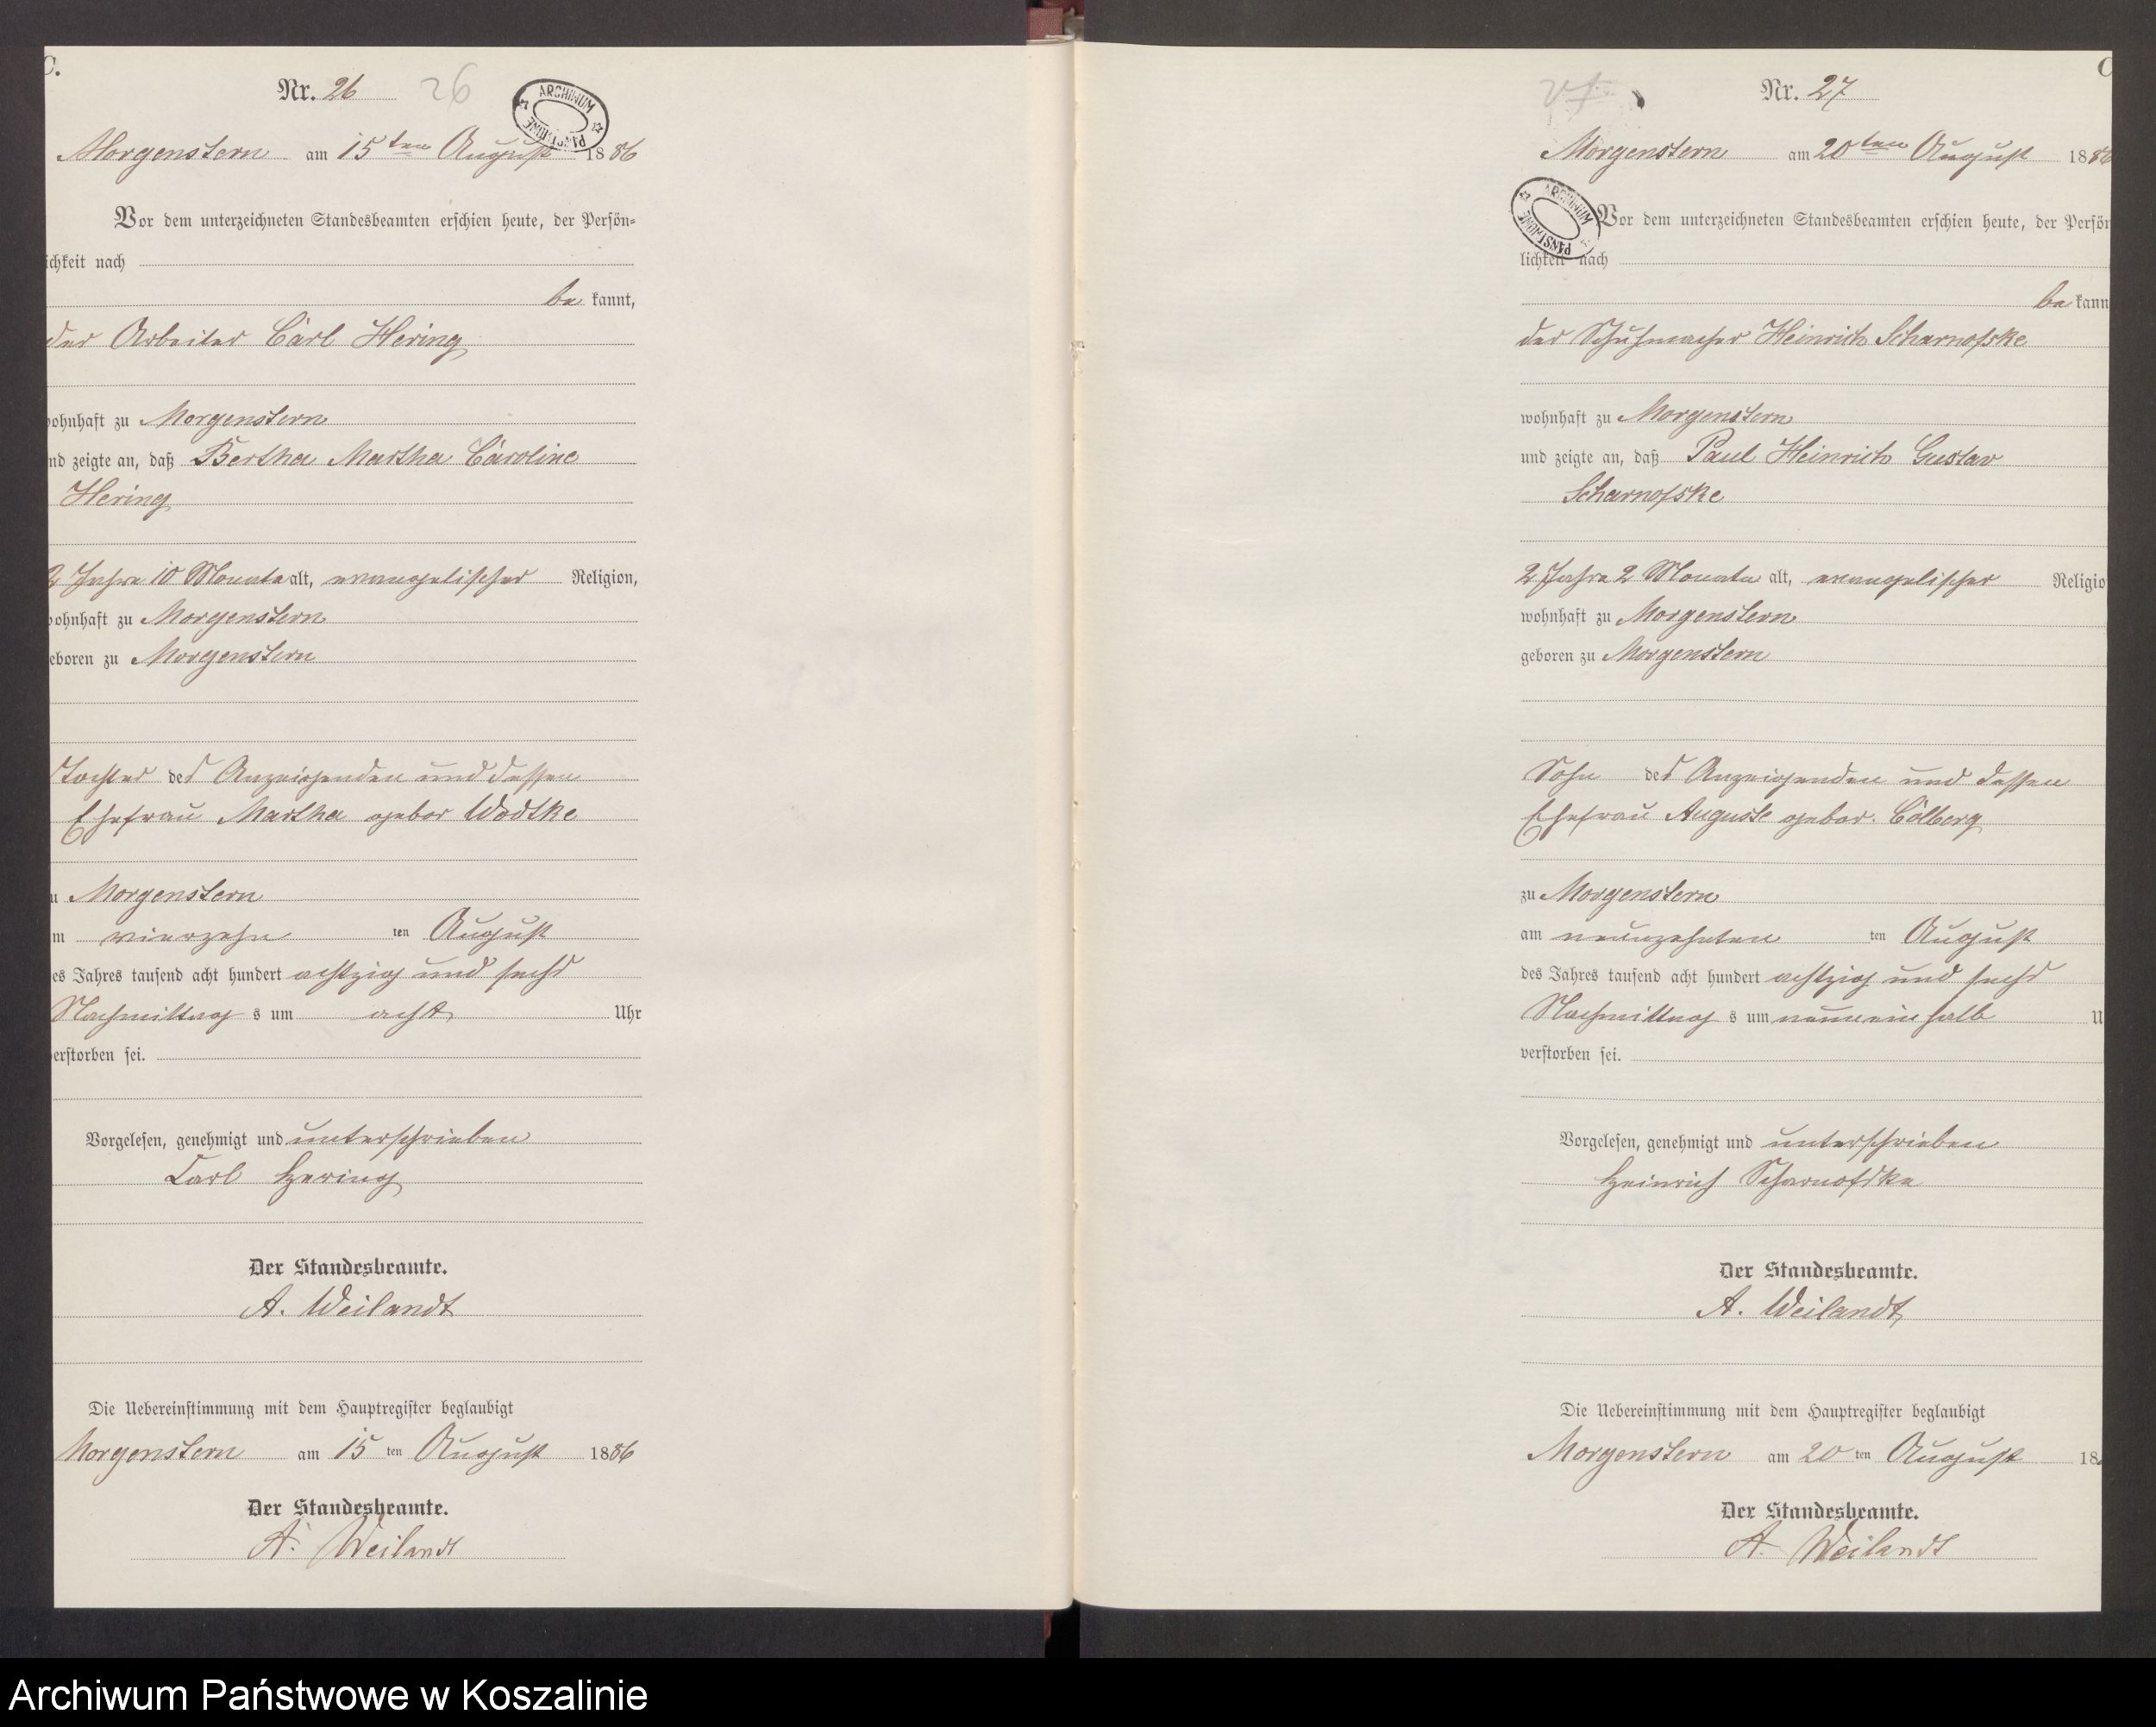 C.
Nr. 26 26
ARCHIWUM PAŃSTWOWE
Morgenstern am 15ten August 1886
Vor dem unterzeichneten Standesbeamten erschien heute, der Persön-
ichkeit nach
be kannt,
der Arbeiter Carl Hering
wohnhaft zu Morgenstern
nd zeigte an, daß Bertha Martha Caroline
Hering
2 Jahre 10 Monate alt, evangelischer Religion,
wohnhaft zu Morgenstern
eboren zu Morgenstern
Tochter des Anzeigenden und dessen
Ehefrau Martha gebor Wodtke
u Morgenstern
m vierzehn ten August
es Jahres tausend acht hundert achtzig und sechs
Nachmittag s um acht Uhr
verstorben sei.
Vorgelesen, genehmigt und unterschrieben
Carl Hering
Der Standesbeamte.
A. Weilandt
Die Uebereinstimmung mit dem Hauptregister beglaubigt
Morgenstern am 15 ten August 1886
Der Standesbeamte.
A. Weilandt
C
27 Nr. 27
Morgenstern am 20ten August 1886
ARCHIWUM PAŃSTWOWE
Vor dem unterzeichneten Standesbeamten erschien heute, der Persön
lichkeit nach
be kann
der Schuhmacher Heinrich Scharnofske
wohnhaft zu Morgenstern
und zeigte an, daß Paul Heinrich Gustav
Scharnofske
2 Jahre 2 Monate alt, evangelischer Religio
wohnhaft zu Morgenstern
geboren zu Morgenstern
Sohn des Anzeigenden und dessen
Ehefrau Auguste gebor. Colberg
zu Morgenstern
am neunzehnten ten August
des Jahres tausend acht hundert achtzig und sechs
Nachmittag s um neuneinhalb U
verstorben sei.
Vorgelesen, genehmigt und unterschrieben
Heinrich Scharnofske
Der Standesbeamte.
A. Weilandt
Die Uebereinstimmung mit dem Hauptregister beglaubigt
Morgenstern am 20 ten August 18
Der Standesbeamte.
A. Weilandt
Archiwum Państwowe w Koszalinie